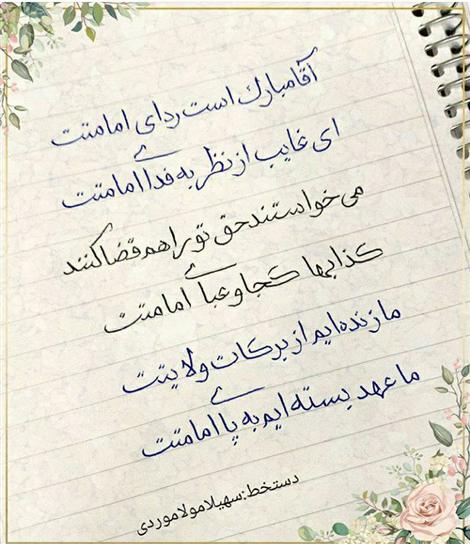 آقا مبارك است ردای امامتت
ای غایب از نظر به فدای امامتت
می خواستند حق تو را هم قضا کنند
کذابها کجا و عبای امامتت
ما زنده ایم از برکات ولایتت
ما عهد بسته ایم به پای امامتت
دستخط:سهیلا مولاموردی